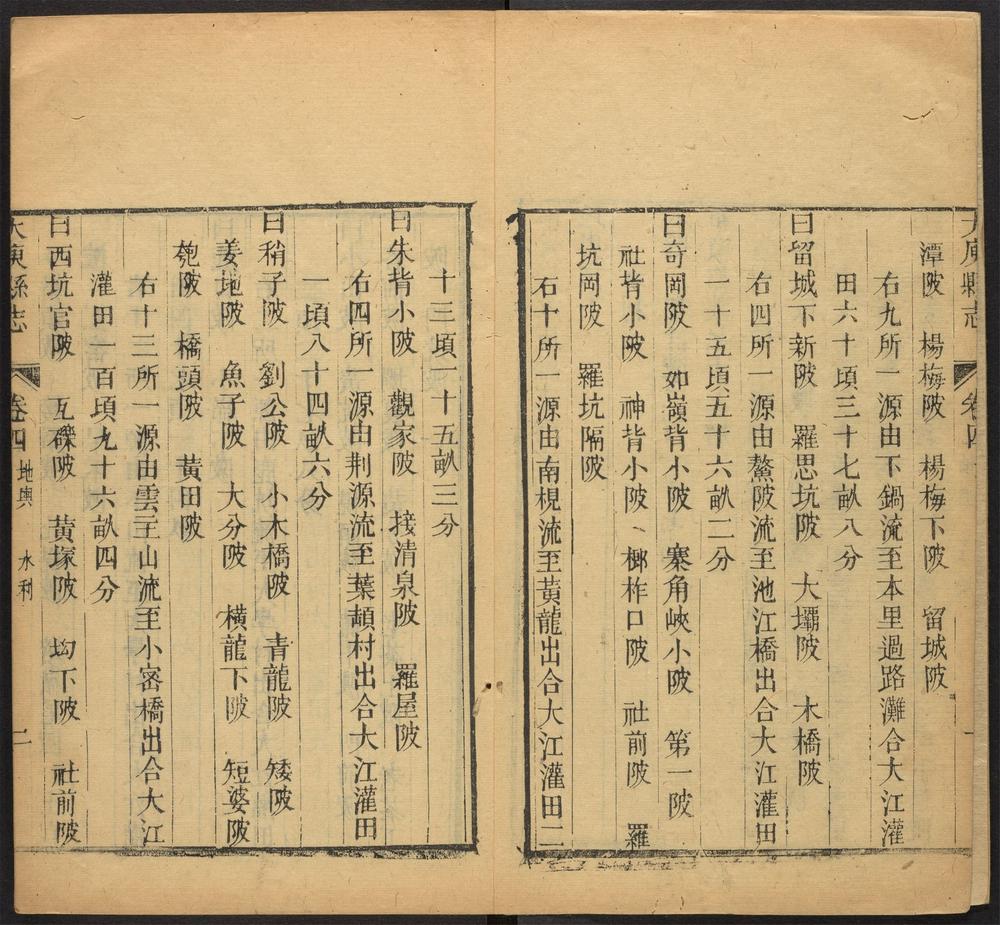 大庾縣志 卷四 一
潭陂 楊梅陂 楊梅下陂 留城陂
右九所一源由下鍋流至本里過路灘合大江灌
田六十頃三十七畝八分
曰留城下新陂 羅思坑陂 大壩陂 木橋陂
右四所一源由鰲陂流至池江橋出合大江灌田
一十五頃五十六畝二分
曰奇岡陂 如嶺背小陂 寨角峽小陂 第一陂
社背小陂 神背小陂 榔柞口陂 社前陂 羅
坑岡陂 羅坑隔陂
右十所一源由南梘流至黃龍出合大江灌田二
十三頃一十五畝三分
曰朱背小陂 觀家陂 接清泉陂 羅屋陂
右四所一源由荆源流至葉頡村出合大江灌田
一頃八十四畝六分
曰稍子陂 劉公陂 小木橋陂 青龍陂 矮陂
姜地陂 魚子陂 大分陂 橫龍下陂 短婆陂
匏陂 橋頭陂 黃田陂
右十三所一源由雲王山流至小密橋出合大江
灌田一百頃九十六畝四分
曰西坑官陂 瓦礫陂 黃塚陂 坳下陂 社前陂
大庾縣志 卷四 地輿 水利 二